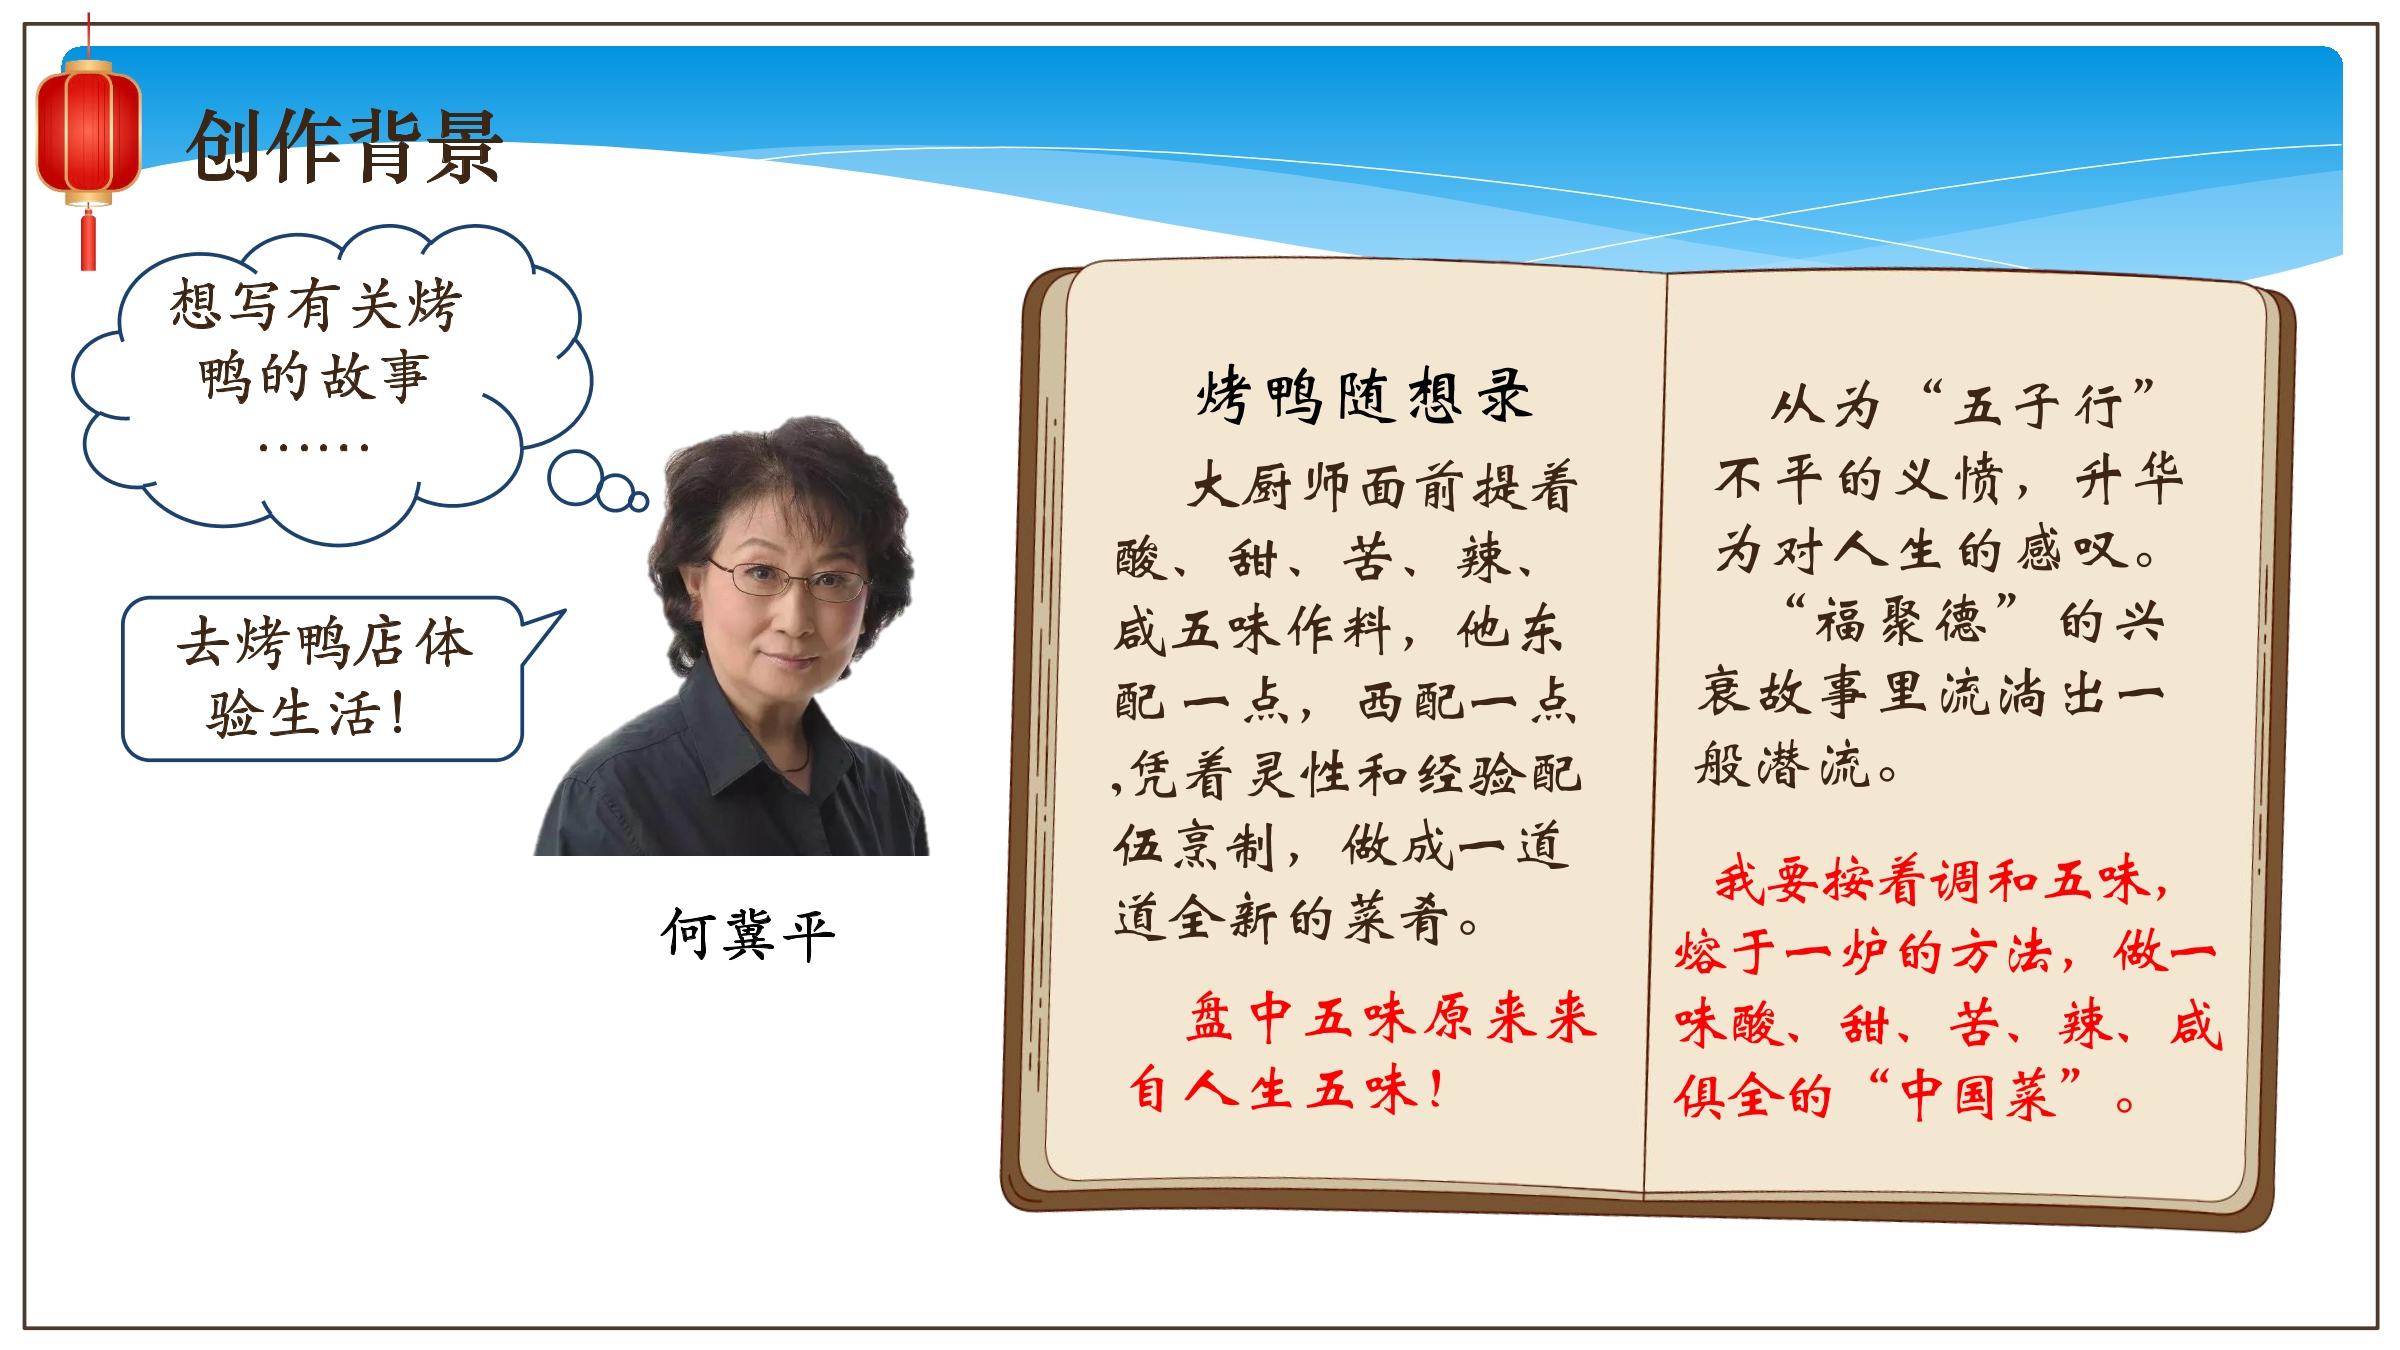 创作背景
想写有关烤
鸭的故事
······
去烤鸭店体
验生活！
何冀平
烤鸭随想录
大厨师面前提着
酸、甜、苦、辣、
咸五味作料，他东
配一点，西配一点
,凭着灵性和经验配
伍烹制，做成一道
道全新的菜肴。
盘中五味原来来
自人生五味！
从为“五子行”
不平的义愤，升华
为对人生的感叹。
“福聚德”的兴
衰故事里流淌出一
般潜流。
我要按着调和五味，
熔于一炉的方法，做一
味酸、甜、苦、辣、咸
俱全的“中国菜”。